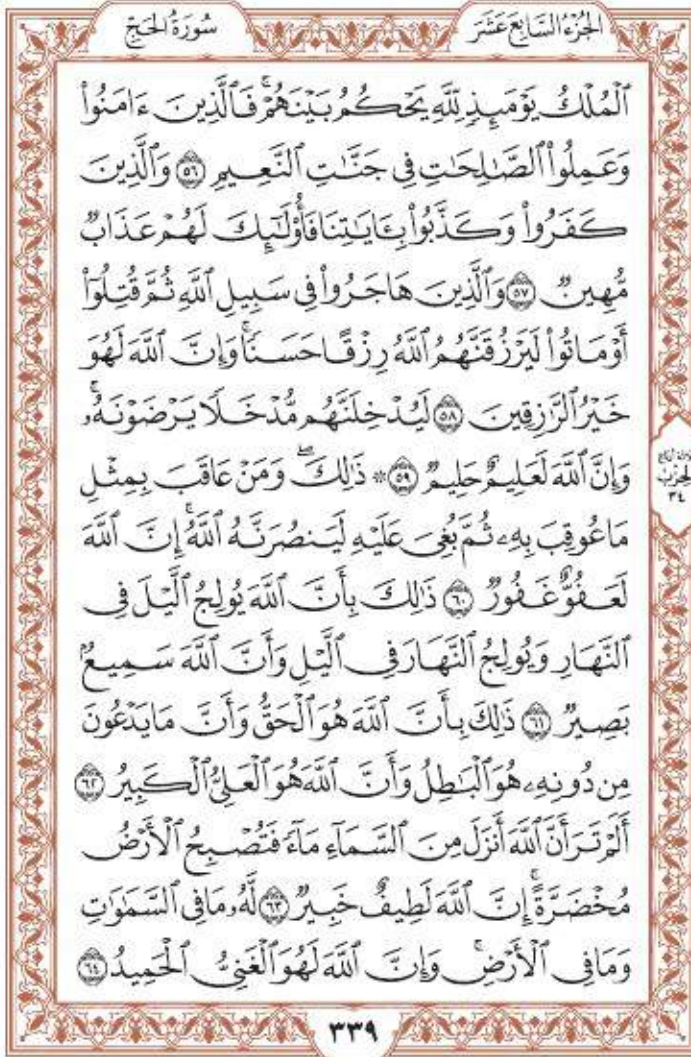 الجُزْءُ السَّابِعَ عَشَرَ
سُورَةُ الحَجِّ
ٱلۡمُلۡكُ يَوۡمَئِذٖ لِّلَّهِ يَحۡكُمُ بَيۡنَهُمۡۚ فَٱلَّذِينَ ءَامَنُواْ
وَعَمِلُواْ ٱلصَّٰلِحَٰتِ فِي جَنَّٰتِ ٱلنَّعِيمِ ٥٦ وَٱلَّذِينَ
كَفَرُواْ وَكَذَّبُواْ بِـَٔايَٰتِنَا فَأُوْلَٰٓئِكَ لَهُمۡ عَذَابٞ
مُّهِينٞ ٥٧ وَٱلَّذِينَ هَاجَرُواْ فِي سَبِيلِ ٱللَّهِ ثُمَّ قُتِلُوٓاْ
أَوۡ مَاتُواْ لَيَرۡزُقَنَّهُمُ ٱللَّهُ رِزۡقًا حَسَنٗاۚ وَإِنَّ ٱللَّهَ لَهُوَ
خَيۡرُ ٱلرَّٰزِقِينَ ٥٨ لَيُدۡخِلَنَّهُم مُّدۡخَلٗا يَرۡضَوۡنَهُۥۚ
وَإِنَّ ٱللَّهَ لَعَلِيمٌ حَلِيمٞ ٥٩ ۞ ذَٰلِكَۖ وَمَنۡ عَاقَبَ بِمِثۡلِ
مَا عُوقِبَ بِهِۦ ثُمَّ بُغِيَ عَلَيۡهِ لَيَنصُرَنَّهُ ٱللَّهُۚ إِنَّ ٱللَّهَ
لَعَفُوٌّ غَفُورٞ ٦٠ ذَٰلِكَ بِأَنَّ ٱللَّهَ يُولِجُ ٱلَّيۡلَ فِي
ٱلنَّهَارِ وَيُولِجُ ٱلنَّهَارَ فِي ٱلَّيۡلِ وَأَنَّ ٱللَّهَ سَمِيعُۢ
بَصِيرٞ ٦١ ذَٰلِكَ بِأَنَّ ٱللَّهَ هُوَ ٱلۡحَقُّ وَأَنَّ مَا يَدۡعُونَ
مِن دُونِهِۦ هُوَ ٱلۡبَٰطِلُ وَأَنَّ ٱللَّهَ هُوَ ٱلۡعَلِيُّ ٱلۡكَبِيرُ ٦٢
أَلَمۡ تَرَ أَنَّ ٱللَّهَ أَنزَلَ مِنَ ٱلسَّمَآءِ مَآءٗ فَتُصۡبِحُ ٱلۡأَرۡضُ
مُخۡضَرَّةًۚ إِنَّ ٱللَّهَ لَطِيفٌ خَبِيرٞ ٦٣ لَّهُۥ مَا فِي ٱلسَّمَٰوَٰتِ
وَمَا فِي ٱلۡأَرۡضِۚ وَإِنَّ ٱللَّهَ لَهُوَ ٱلۡغَنِيُّ ٱلۡحَمِيدُ ٦٤
الحِزْب
٣٤
٣٣٩